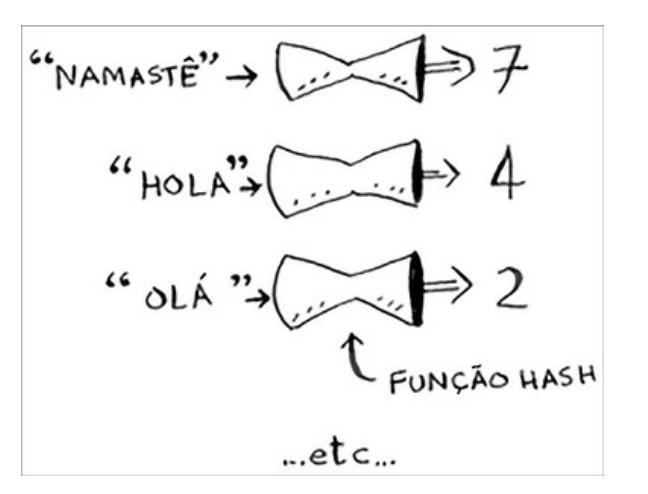 “NAMASTÊ” → 7
“HOLA” → 4
“OLÁ ” → 2
FUNÇÃO HASH
...etc...